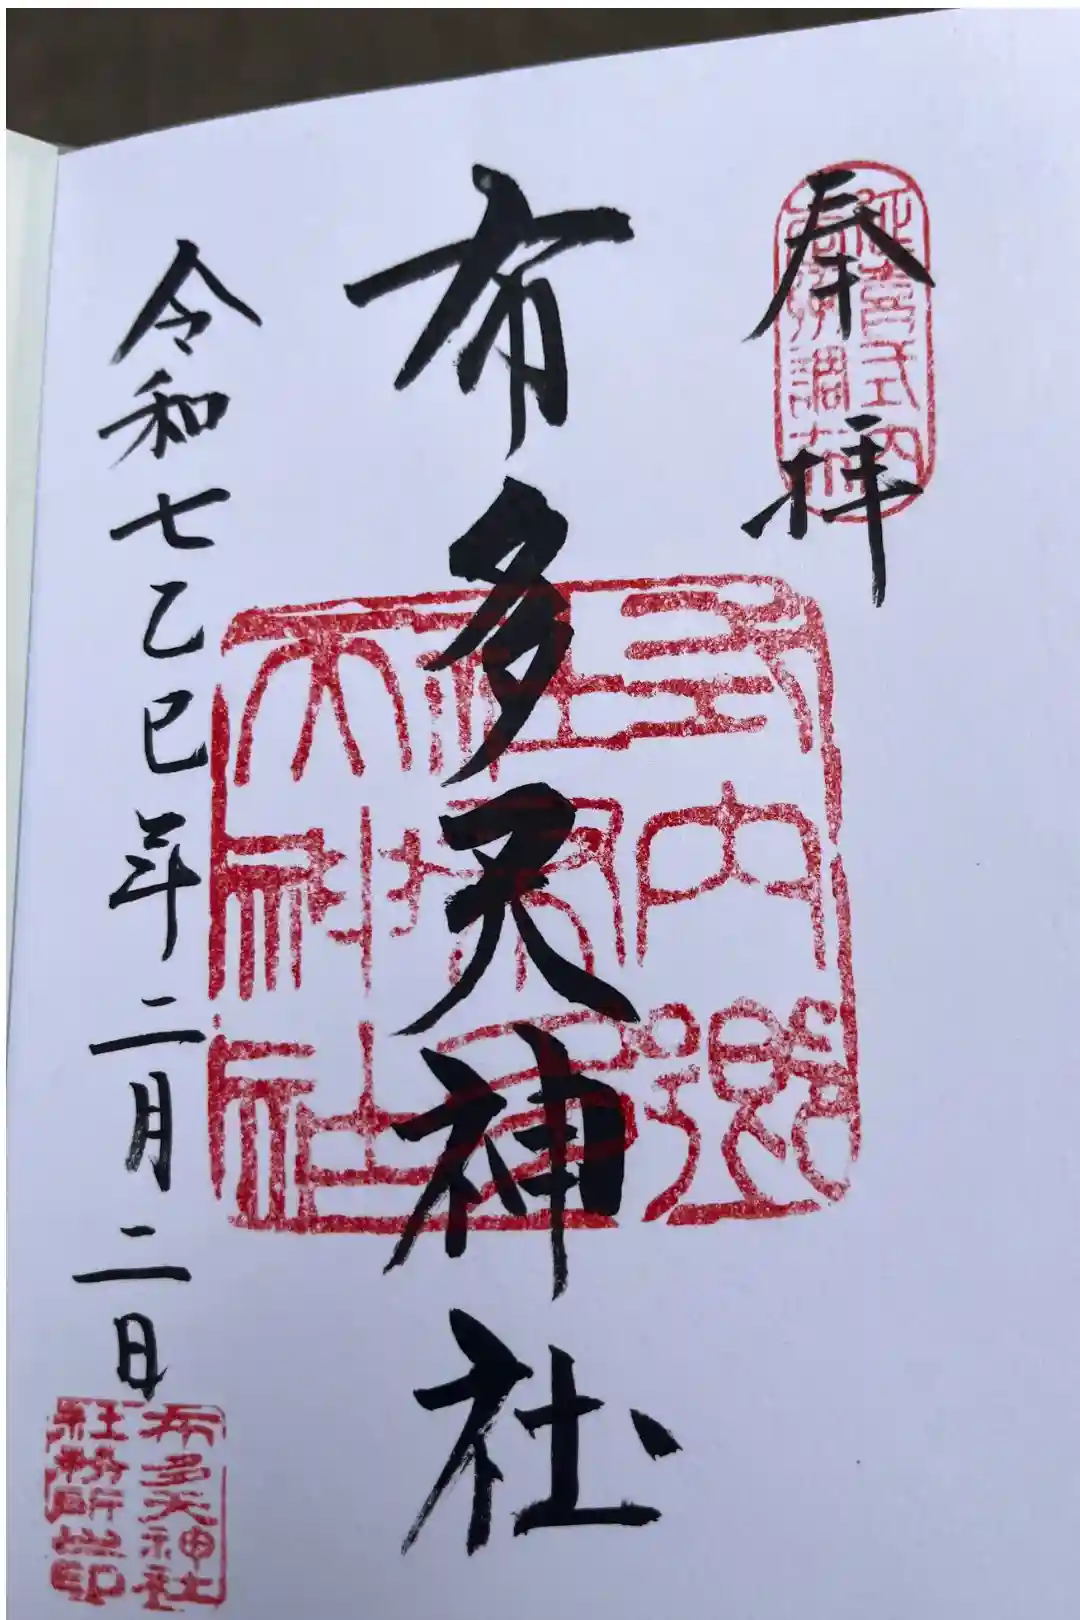 奉拝
延喜式内
調布
布多天神社
式内郷
社
天神社
令和七乙巳年二月二日
布多天神社
社務所之印